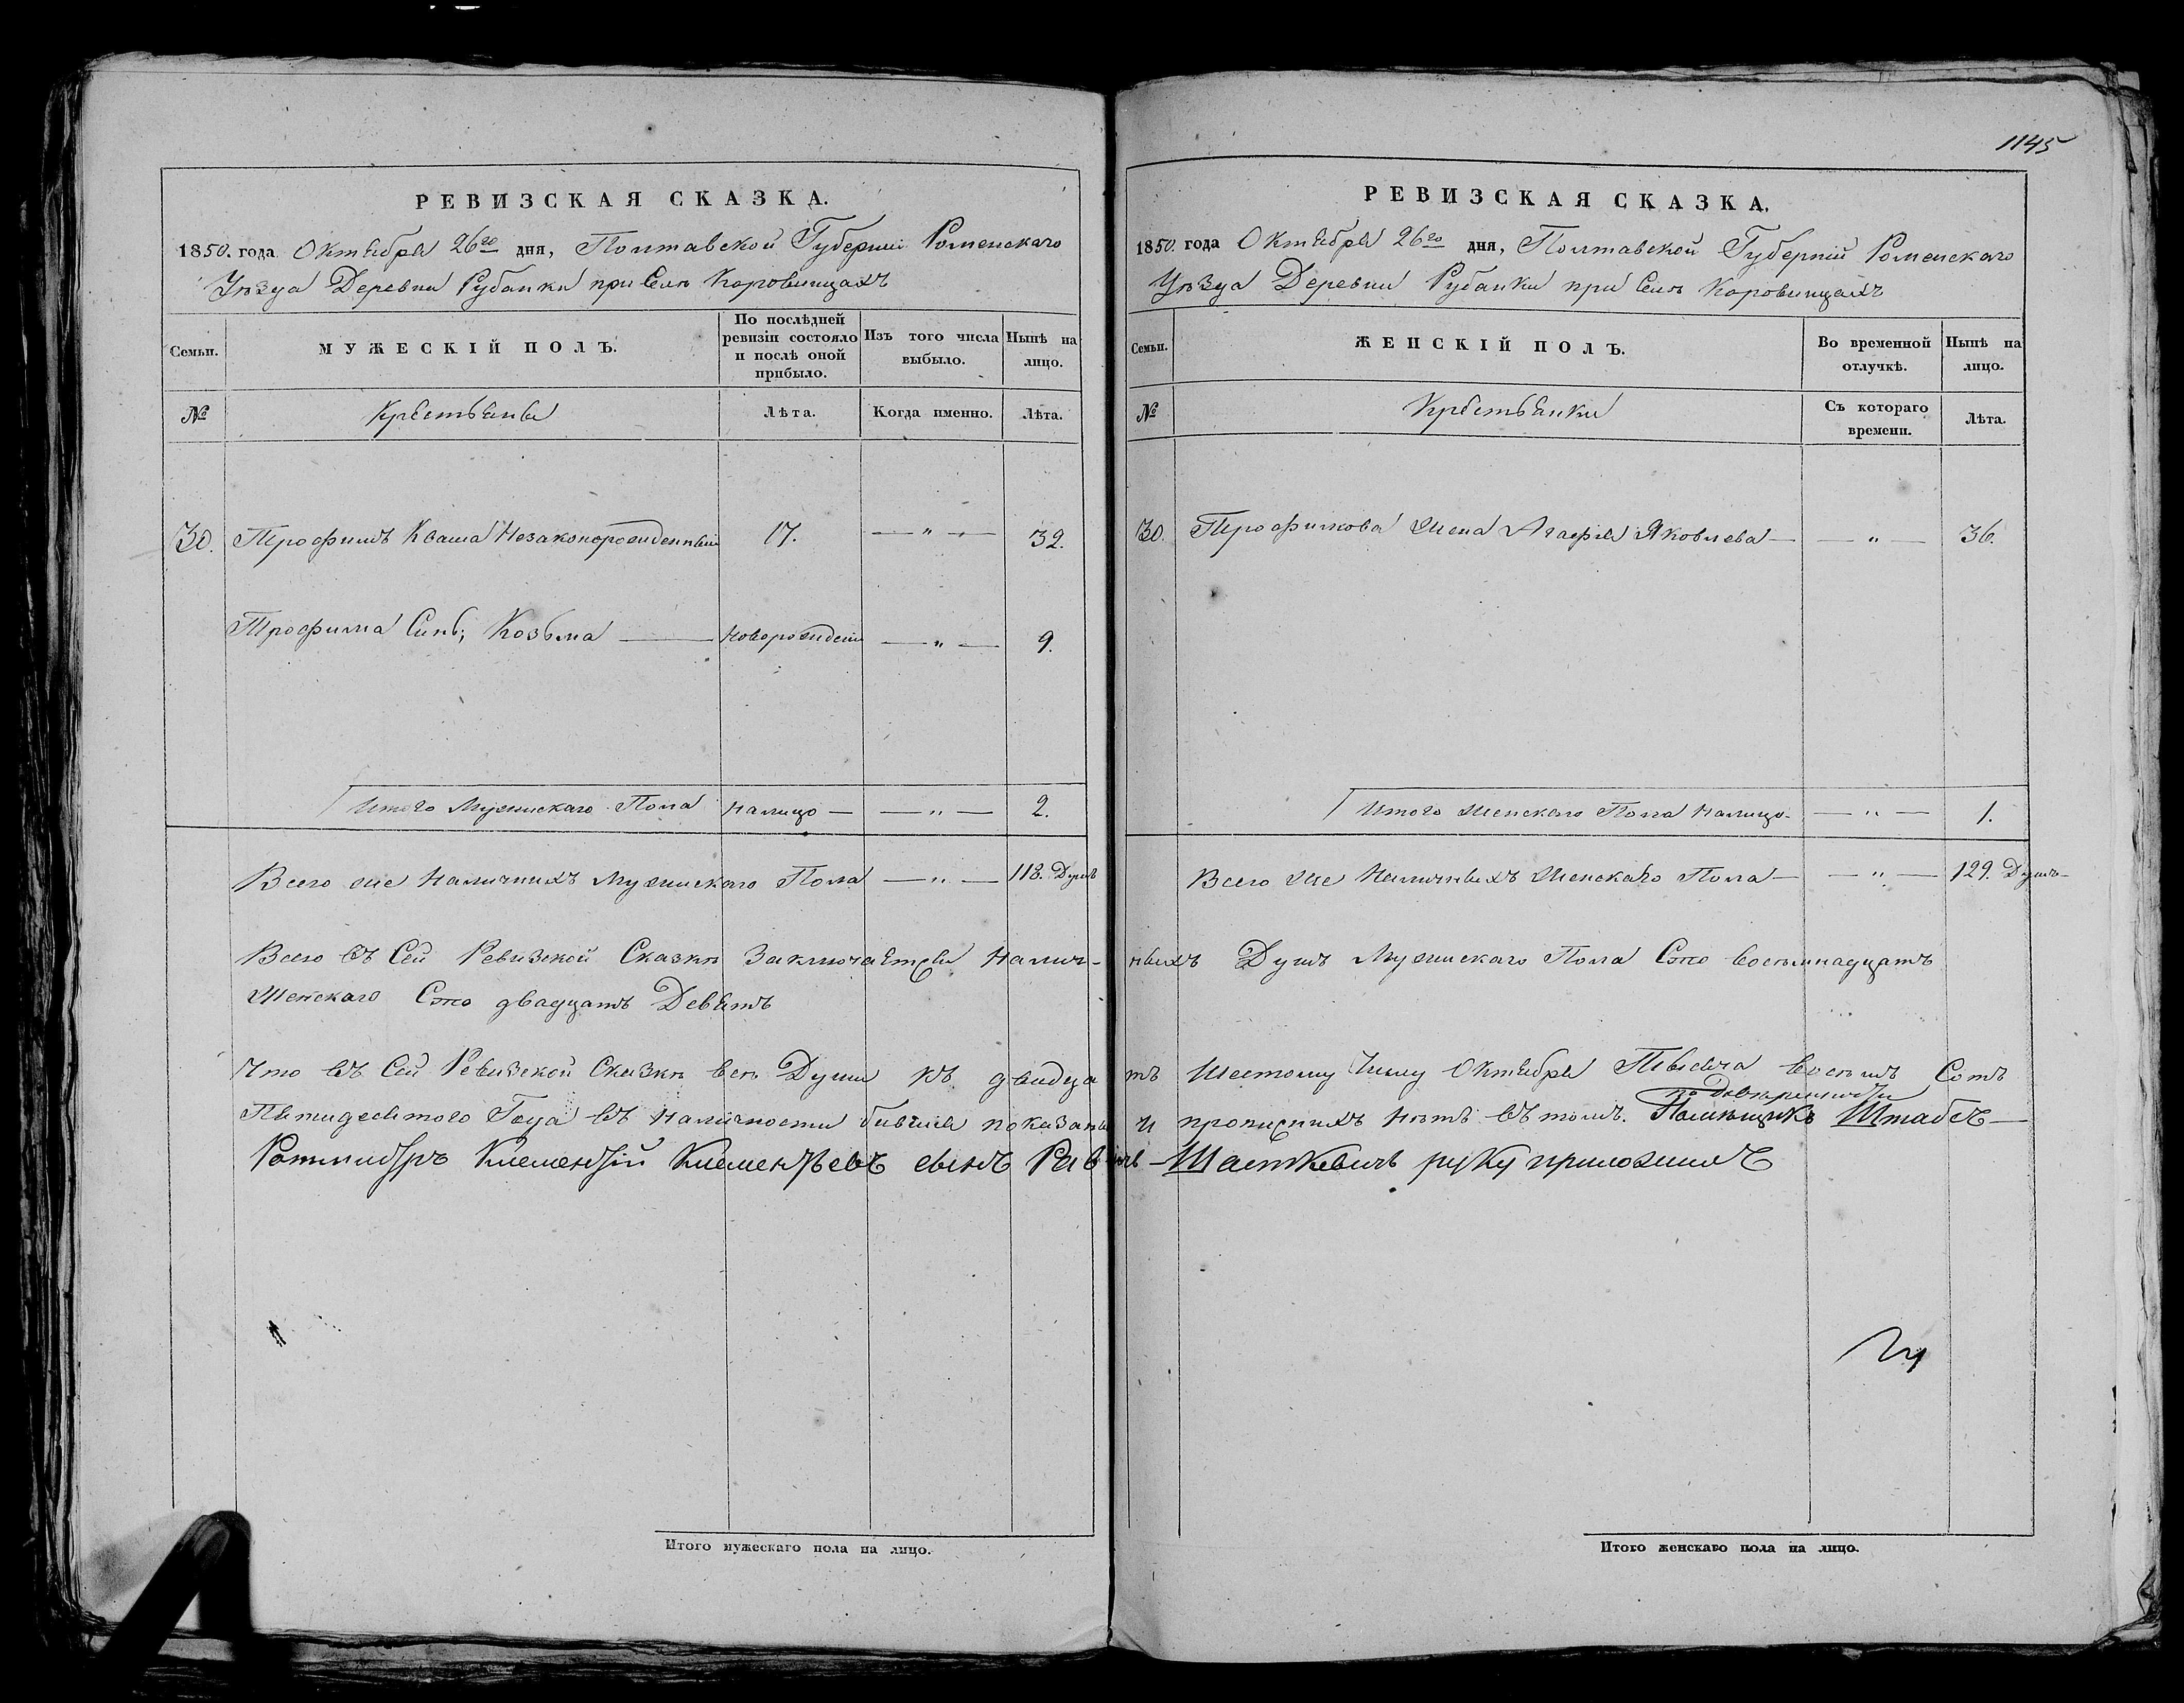 1145
РЕВИЗСКАЯ СКАЗКА.
1850. года Октября 26го дня, Полтавской Губерніи Роменскаго
Уѣзда Деревни Рубанки при Селѣ Коровинцахъ
Семьи.
МУЖЕСКІЙ ПОЛЪ.
По послѣдней ревизіи состояло и послѣ оной прибыло.
Изъ того числа выбыло.
Нынѣ на лицо.
№
Крестьяне
Лѣта.
Когда именно.
Лѣта.
30. Трофимъ Кваша Незаконорожденный 17. — " — 32.
Трофима Синъ; Козьма — Новорожден — " — 9.
Итого Мужискаго Пола На лицо — — " — 2.
Всего же Наличнихъ Мужискаго Пола — " — 118. Душъ
РЕВИЗСКАЯ СКАЗКА.
1850. года Октября 26го дня, Полтавской Губерній Роменскаго
Уѣзда Деревни Рубанки при Селѣ Коровинцахъ
Семьи.
ЖЕНСКІЙ ПОЛЪ.
Во временной отлучкѣ.
Нынѣ на лицо.
№
Крестьянки
Съ котораго времени.
Лѣта.
30. Трофимова Жена Агафія Яковлева — — " — 36.
Итого Женскаго Пола На лицо — — " — 1.
Всего же Наличныхъ Женскаго Пола — — " — 129. Душъ
Всего въ Сей Ревизской Сказкѣ Заключается Налич-ныхъ Душъ Мужискаго Пола Сто восѣмнадцатъ
Женскаго Сто двадцатъ Девятъ
Что въ Сей Ревизской Сказкѣ всѣ Души къ двадцатъ Шестому Числу Октября Тисяча восѣмъ Сотъ
Пятидесятого Года въ наличности бившіе показаны и прописнихъ нѣтъ въ томъ. Помѣщикъ Штабсъ—
Ротмистръ Клементій Клементьевъ сынъ руку приложилъ
Итого мужескаго пола на лицо.
Итого женскаго пола на лицо.